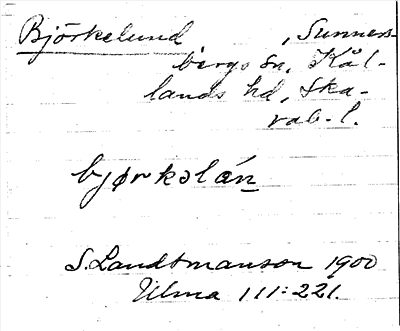 Björkelund , Sunners-
bergs sn, Kål-
lands hd, Ska-
rab. l.
bjørkəlán
S. Landtmanson 1900
Ulma 111:221.